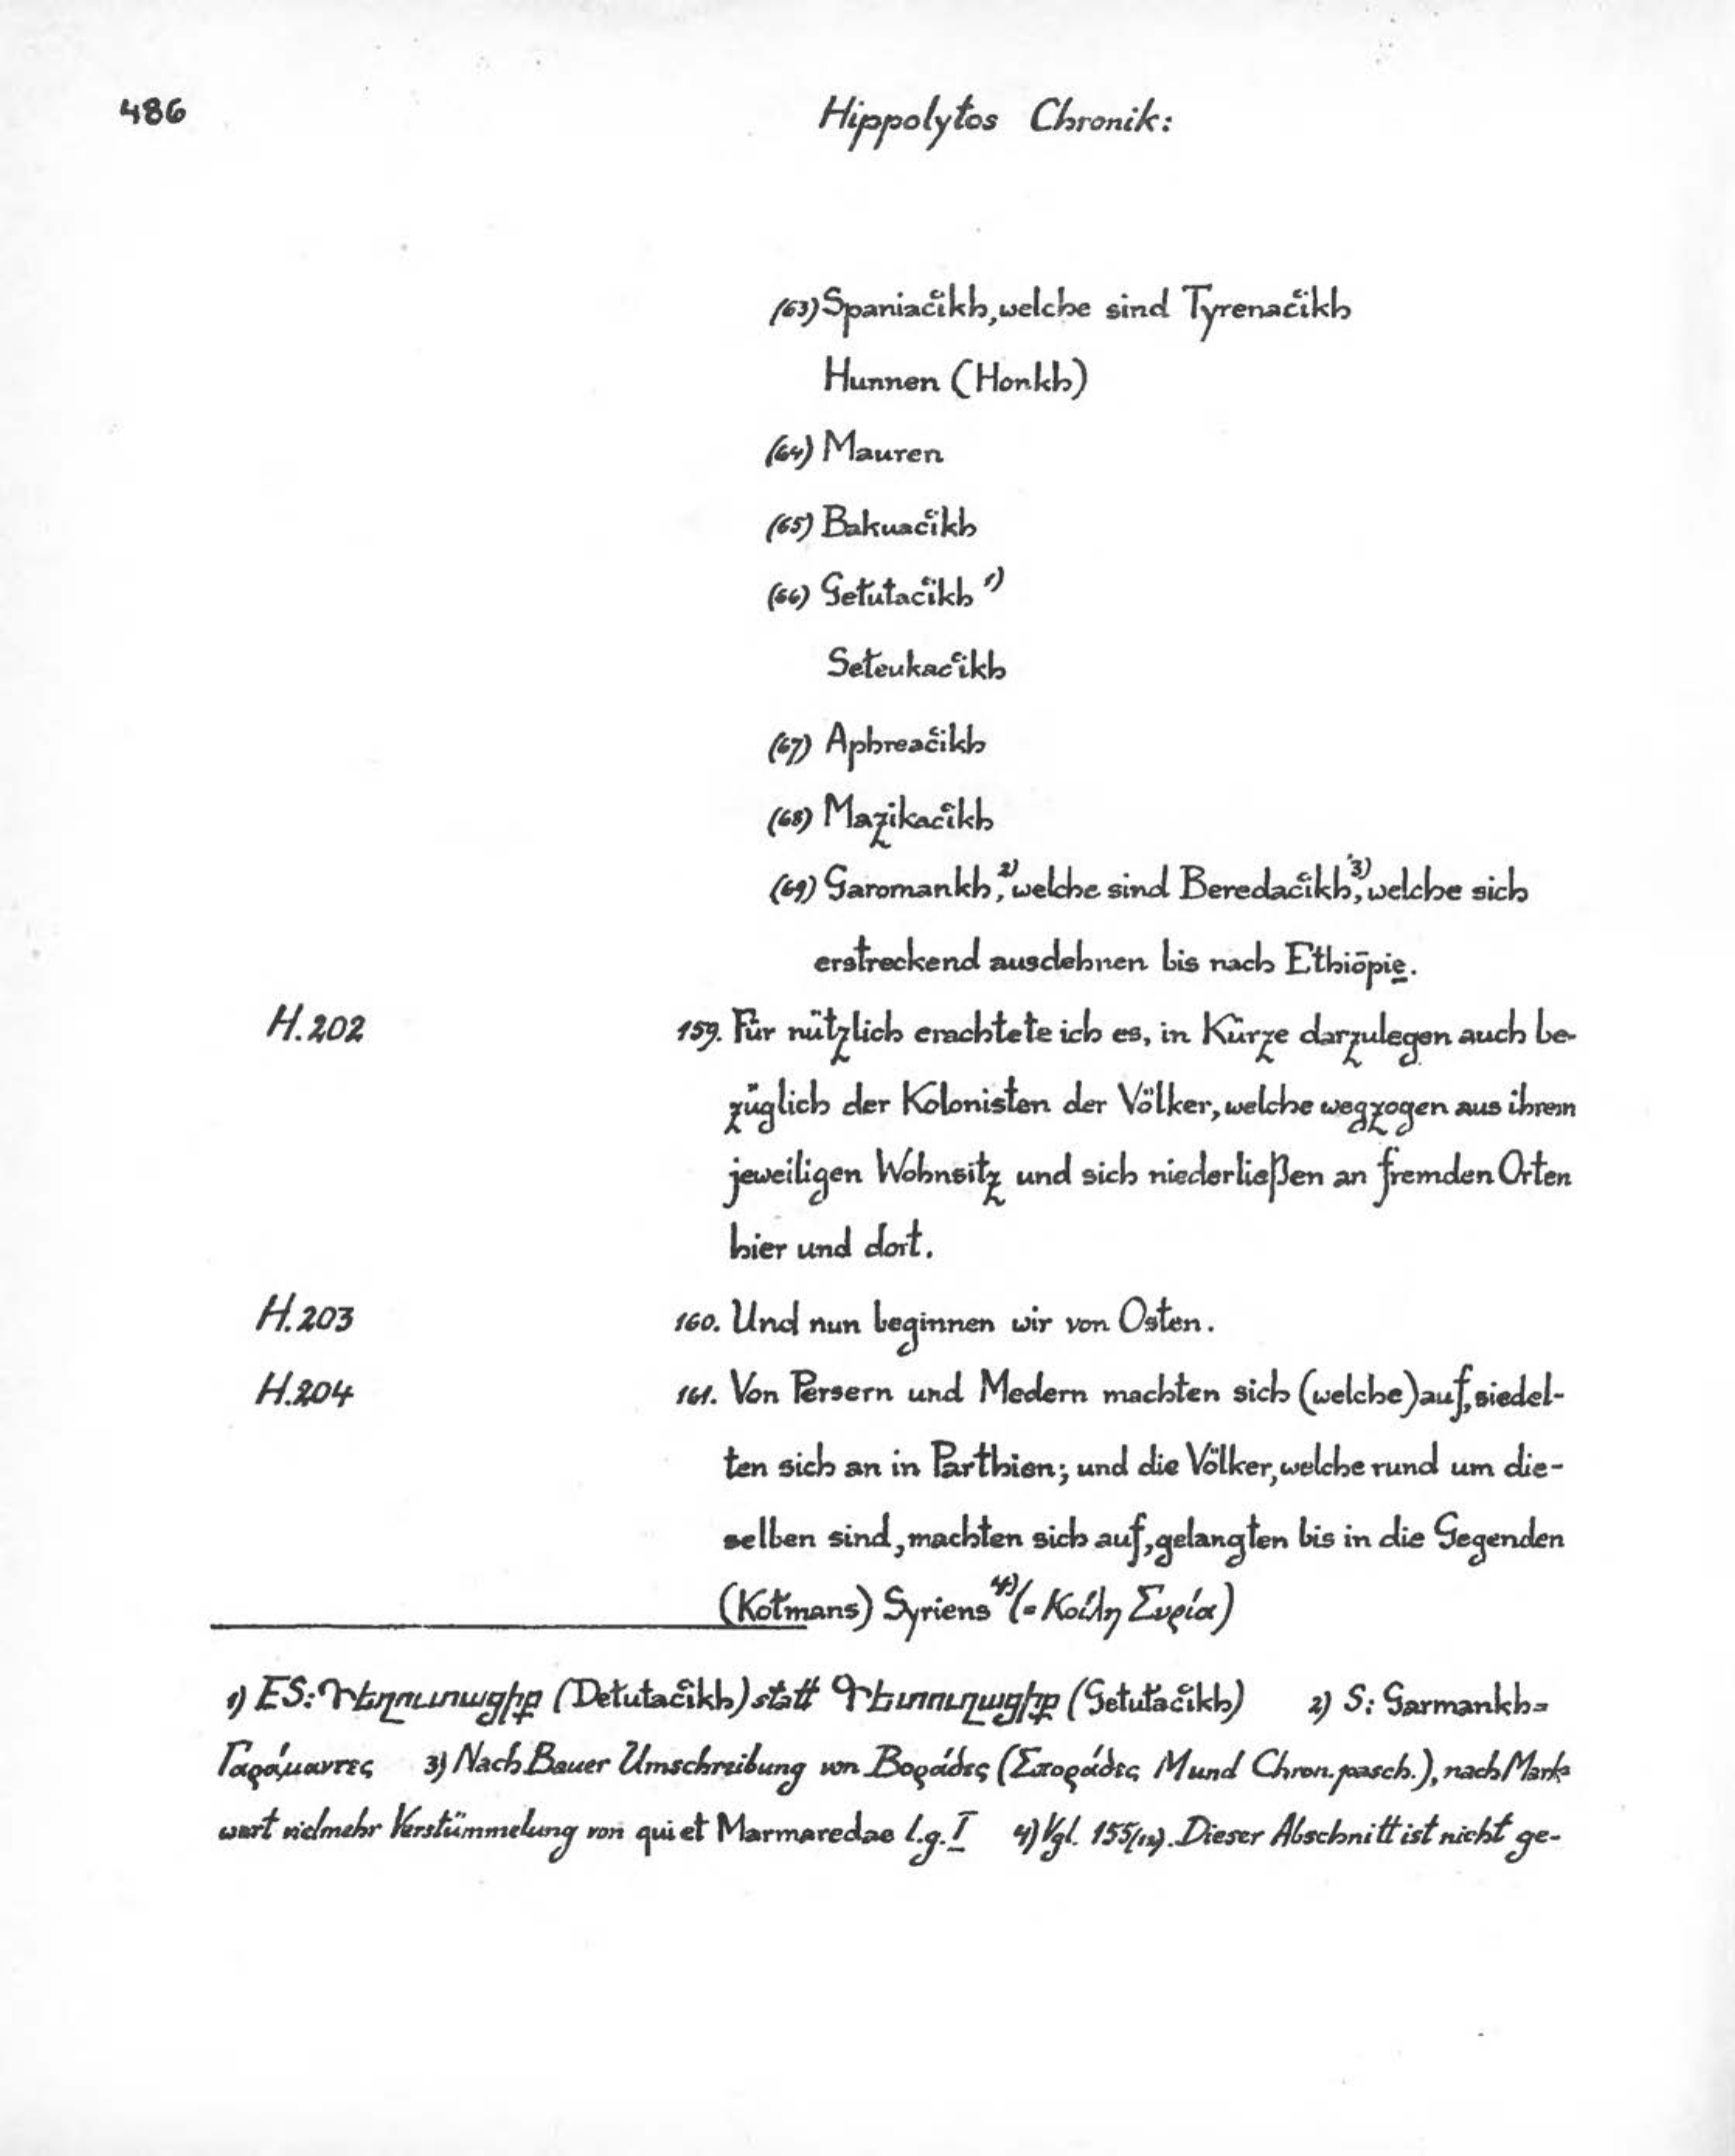 486
Hippolytos Chronik:
(63) Spaniac̔ikh, welche sind Tyrenac̔ikh
Hunnen (Honkh)
(64) Mauren
(65) Bakuac̔ikh
(66) Gełutac̔ikh 1)
Sełeukac̔ikh
(67) Aphreac̔ikh
(68) Mazikac̔ikh
(69) Garomankh, 2) welche sind Beredac̔ikh, 3) welche sich
erstreckend ausdehnen bis nach Ethiōpie.
H.202
159. Für nützlich erachtete ich es, in Kürze darzulegen auch be-
züglich der Kolonisten der Völker, welche wegzogen aus ihrem
jeweiligen Wohnsitz und sich niederließen an fremden Orten
hier und dort.
H.203
160. Und nun beginnen wir von Osten.
H.204
161. Von Persern und Medern machten sich (welche) auf, siedel-
ten sich an in Parthien; und die Völker, welche rund um die-
selben sind, machten sich auf, gelangten bis in die Gegenden
(Kołmans) Syriens 4) (= Κοίλη Συρία)
1) ES: Դեղուտացիք (Dełutac̔ikh) statt Գետուղացիք (Getułac̔ikh) 2) S: Garmankh =
Γαράμαντες 3) Nach Bauer Umschreibung von Βοράδες (Σποράδες M und Chron. pasch.), nach Mark-
wart vielmehr Verstümmelung von qui et Marmaredae l.g. I 4) Vgl. 155/(12). Dieser Abschnitt ist nicht ge-